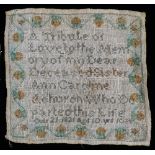 A Tribute of
Love to the Mem
ory of my Dear
Deceased Sister
Ann Caroline
who De
parted this Life